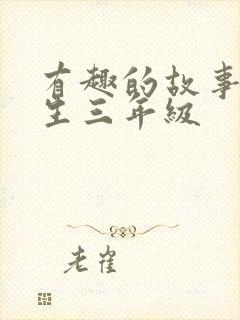 有趣的故事
生三年級
老崔